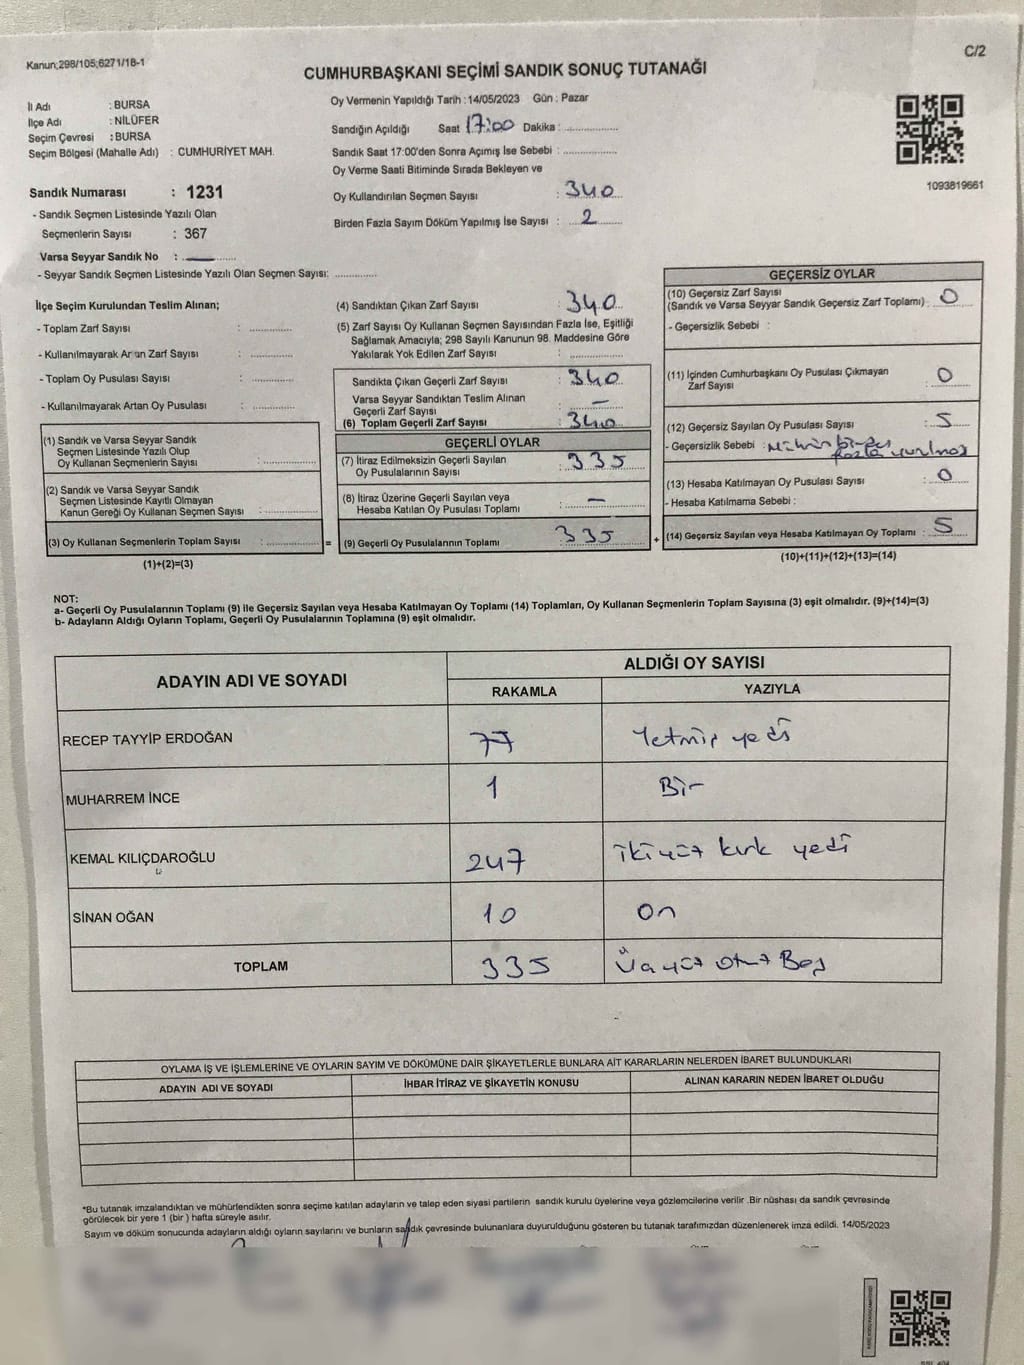 Kanun;298/105;6271/18-1
C/2
CUMHURBAŞKANI SEÇİMİ SANDIK SONUÇ TUTANAĞI
İl Adı : BURSA
İlçe Adı : NİLÜFER
Seçim Çevresi : BURSA
Seçim Bölgesi (Mahalle Adı) : CUMHURİYET MAH.
Sandık Numarası : 1231
- Sandık Seçmen Listesinde Yazılı Olan
Seçmenlerin Sayısı : 367
Varsa Seyyar Sandık No :
- Seyyar Sandık Seçmen Listesinde Yazılı Olan Seçmen Sayısı:
Oy Vermenin Yapıldığı Tarih : 14/05/2023 Gün : Pazar
Sandığın Açıldığı Saat 17:00 Dakika :
Sandık Saat 17:00'den Sonra Açımış İse Sebebi :
Oy Verme Saati Bitiminde Sırada Bekleyen ve
Oy Kullandırılan Seçmen Sayısı : 340
Birden Fazla Sayım Döküm Yapılmış İse Sayısı : 2
1093819661
İlçe Seçim Kurulundan Teslim Alınan;
- Toplam Zarf Sayısı :
- Kullanılmayarak Artan Zarf Sayısı :
- Toplam Oy Pusulası Sayısı :
- Kullanılmayarak Artan Oy Pusulası :
(1) Sandık ve Varsa Seyyar Sandık
Seçmen Listesinde Yazılı Olup
Oy Kullanan Seçmenlerin Sayısı :
(2) Sandık ve Varsa Seyyar Sandık
Seçmen Listesinde Kayıtlı Olmayan
Kanun Gereği Oy Kullanan Seçmen Sayısı :
(3) Oy Kullanan Seçmenlerin Toplam Sayısı :
(1)+(2)=(3)
=
(4) Sandıktan Çıkan Zarf Sayısı : 340
(5) Zarf Sayısı Oy Kullanan Seçmen Sayısından Fazla İse, Eşitliği
Sağlamak Amacıyla; 298 Sayılı Kanunun 98. Maddesine Göre
Yakılarak Yok Edilen Zarf Sayısı :
Sandıkta Çıkan Geçerli Zarf Sayısı : 340
Varsa Seyyar Sandıktan Teslim Alınan
Geçerli Zarf Sayısı : –
(6) Toplam Geçerli Zarf Sayısı : 340
GEÇERLİ OYLAR
(7) İtiraz Edilmeksizin Geçerli Sayılan
Oy Pusulalarının Sayısı : 335
(8) İtiraz Üzerine Geçerli Sayılan veya
Hesaba Katılan Oy Pusulası Toplamı : –
(9) Geçerli Oy Pusulalarının Toplamı : 335
+
GEÇERSİZ OYLAR
(10) Geçersiz Zarf Sayısı
(Sandık ve Varsa Seyyar Sandık Geçersiz Zarf Toplamı) : 0
- Geçersizlik Sebebi :
(11) İçinden Cumhurbaşkanı Oy Pusulası Çıkmayan
Zarf Sayısı : 0
(12) Geçersiz Sayılan Oy Pusulası Sayısı : 5
- Geçersizlik Sebebi : Mührün birden
fazla vurulması
(13) Hesaba Katılmayan Oy Pusulası Sayısı : 0
- Hesaba Katılmama Sebebi :
(14) Geçersiz Sayılan veya Hesaba Katılmayan Oy Toplamı : 5
(10)+(11)+(12)+(13)=(14)
NOT:
a- Geçerli Oy Pusulalarının Toplamı (9) ile Geçersiz Sayılan veya Hesaba Katılmayan Oy Toplamı (14) Toplamları, Oy Kullanan Seçmenlerin Toplam Sayısına (3) eşit olmalıdır. (9)+(14)=(3)
b- Adayların Aldığı Oyların Toplamı, Geçerli Oy Pusulalarının Toplamına (9) eşit olmalıdır.
ADAYIN ADI VE SOYADI
ALDIĞI OY SAYISI
RAKAMLA YAZIYLA
RECEP TAYYİP ERDOĞAN 77 Yetmiş yedi
MUHARREM İNCE 1 Bir
KEMAL KILIÇDAROĞLU 247 ikiyüz kırk yedi
SİNAN OĞAN 10 On
TOPLAM 335 Üçyüz otuz Beş
OYLAMA İŞ VE İŞLEMLERİNE VE OYLARIN SAYIM VE DÖKÜMÜNE DAİR ŞİKAYETLERLE BUNLARA AİT KARARLARIN NELERDEN İBARET BULUNDUKLARI
ADAYIN ADI VE SOYADI İHBAR İTİRAZ VE ŞİKAYETİN KONUSU ALINAN KARARIN NEDEN İBARET OLDUĞU
*Bu tutanak imzalandıktan ve mühürlendikten sonra seçime katılan adayların ve talep eden siyasi partilerin sandık kurulu üyelerine veya gözlemcilerine verilir .Bir nüshası da sandık çevresinde
görülecek bir yere 1 (bir ) hafta süreyle asılır.
Sayım ve döküm sonucunda adayların aldığı oyların sayılarını ve bunların sandık çevresinde bulunanlara duyurulduğunu gösteren bu tutanak tarafımızdan düzenlenerek imza edildi. 14/05/2023